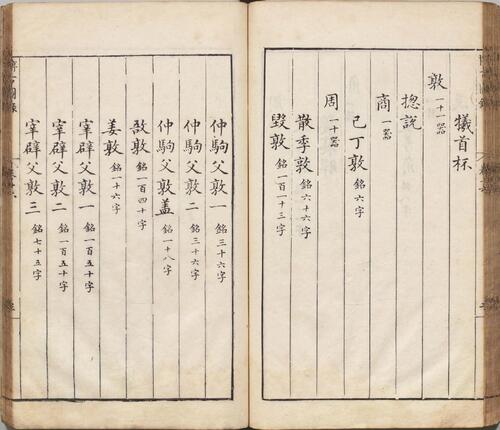 犧首杯
敦 一十一器
揔說
商 一器
己丁敦 銘六字
周 一十器
散季敦 銘六十六字
毀敦 銘一百一十三字
仲駒父敦一 銘三十六字
仲駒父敦二 銘三十六字
仲駒父敦蓋 銘一十八字
敔敦 銘一百四十字
姜敦 銘一十六字
宰辟父敦一 銘一百五十字
宰辟父敦二 銘一百五十字
宰辟父敦三 銘七十五字